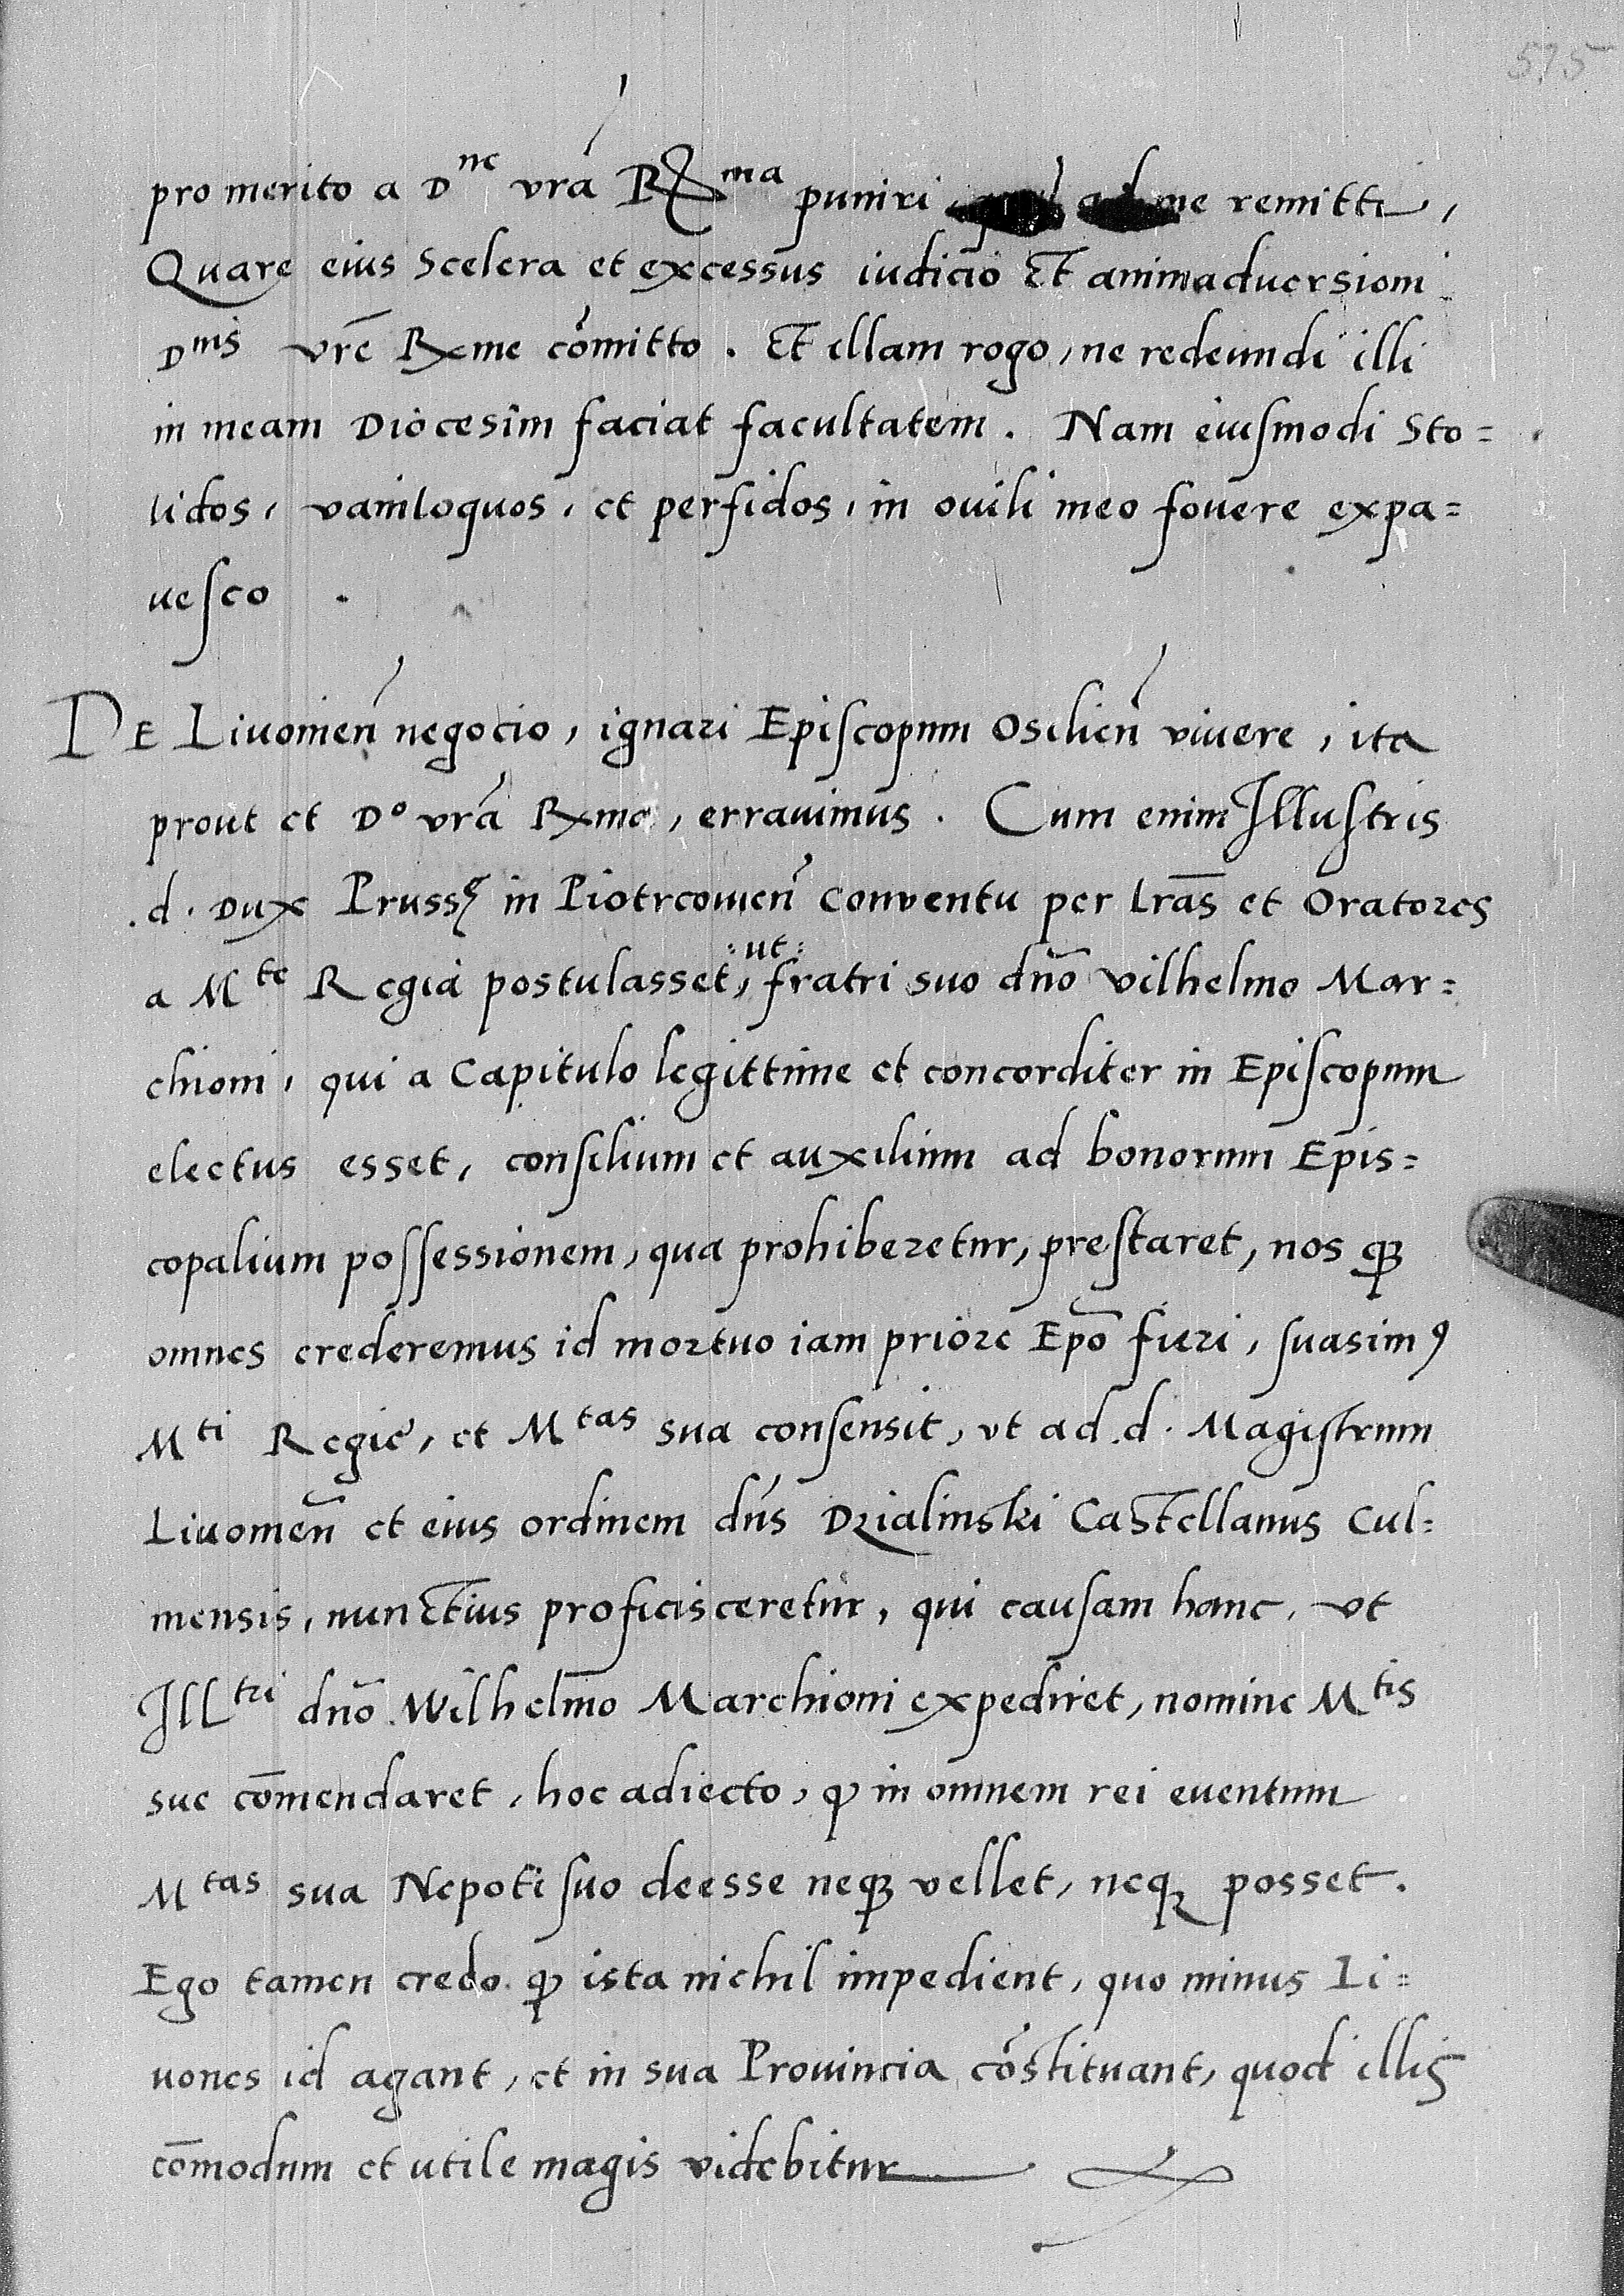 575
pro merito a D^ne vrá Rx^ma puniri, quam ad me remitti,
Quare eius Scelera et excessus iudicio Et animaduersioni
D^nis vrē Rxme cōmitto. Et illam rogo, ne redeundi illi
in meam Diocesim faciat facultatem. Nam eiusmodi Sto=
lidos, vaniloquos, et perfidos, in ouili meo fouere expa=
uesco.
DE Liuonień negocio, ignari Episcopum Osilień viuere, ita
prout et D^o vrá Rxma, errauimus. Cum enim Illustris
.d. Dux Prussę in Piotrcouień Conventu per lrās et Oratores
a M^te Regia postulasset, :ut: fratri suo dno̅ Vilhelmo Mar=
chioni, qui a Capitulo legittime et concorditer in Episcopum
electus esset, consilium et auxilium ad bonorum Epis=
copalium possessionem, qua prohiberetur, prestaret, nos qꝫ
omnes crederemus id mortuo iam priore Epo̅ fieri, suasimꝰ
M^ti Regie, et M^tas sua consensit, vt ad .d. Magistrum
Liuonień et eius ordinem dns̅ Dzialinski Castellanus Cul=
mensis, nunctius proficisceretur, qui causam hanc, vt
Ill^tri dno̅ Wilhelmo Marchioni expediret, nomine M^tis
sue cōmendaret, hoc adiecto, ꝙ in omnem rei euentum
M^tas sua Nepoti suo deesse neqꝫ vellet, neqꝫ posset.
Ego tamen credo ꝙ ista nichil impedient, quo minus Li=
uones id agant, et in sua Prouincia cōstituant, quod illis
cōmodum et utile magis videbitur